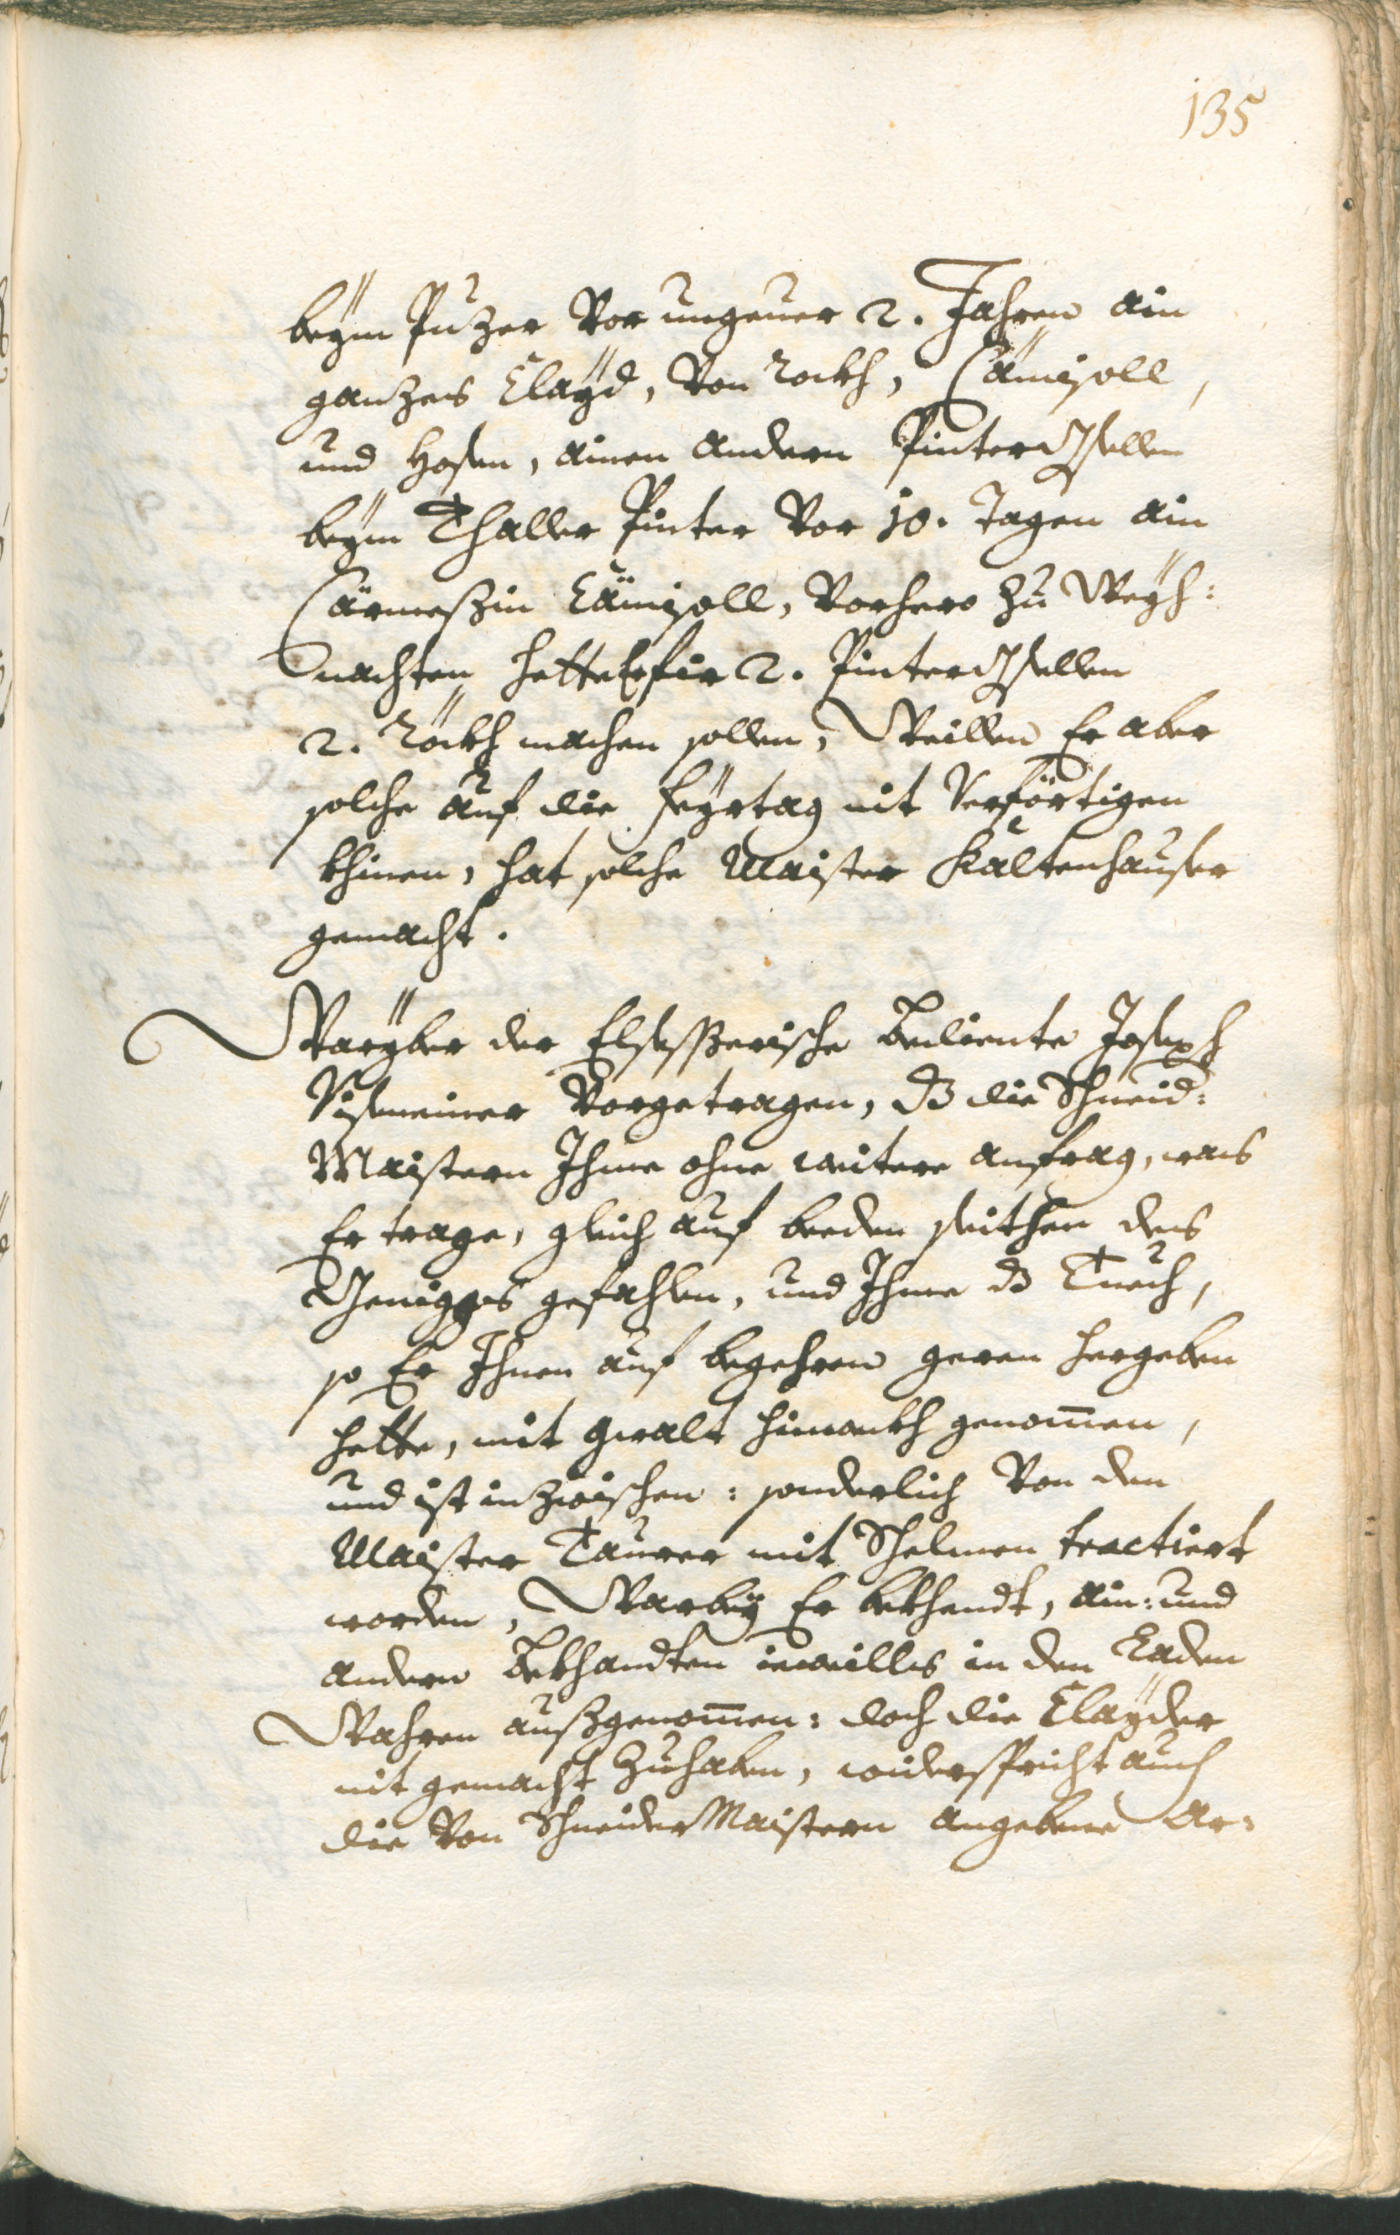 135
beÿm Puzer Vor ungeuer 2. Jahren ain
ganzes Claÿd, Von Rockh, Cämisoll,
und Hosen, ainen andern Pinter Gsellen
beÿm Thaller Pinter Vor 10. Tagen ain
Carmeßin Cämisoll, Vorhero zu Weÿh:
nachten hette Er fir 2. Pinter Gsellen
2. Röckh machen sollen, Weillen Er aber
solche auf die Feÿrtag nit Verförtigen
khinen, hat solche Maister Kaltenhauser
gemacht.
Wariber der Elsesserische Bediente Joseph
Vorgetragen, dß die Schneid:
Maistern Ihme ohne weitere anfrag, was
Er trage, gleich auf beeden seithen des
gefahlen, und Ihme dß Tuech,
so Er Ihnen auf begehren geren hergeben
hette, mit gwalt hinweckh genommen,
und ist inzwischen: sonderlich Von dem
Maister Taurer mit Schelmen tractiert
worden, Warbeÿ Er bekhendt, ain: und
andern Bekhandten iewilles in den Laden
Wahren außgenommen: doch die Claÿder
nit gemacht zuhaben, widerspricht auch
die Von Schneider Maistern angebene Ar: